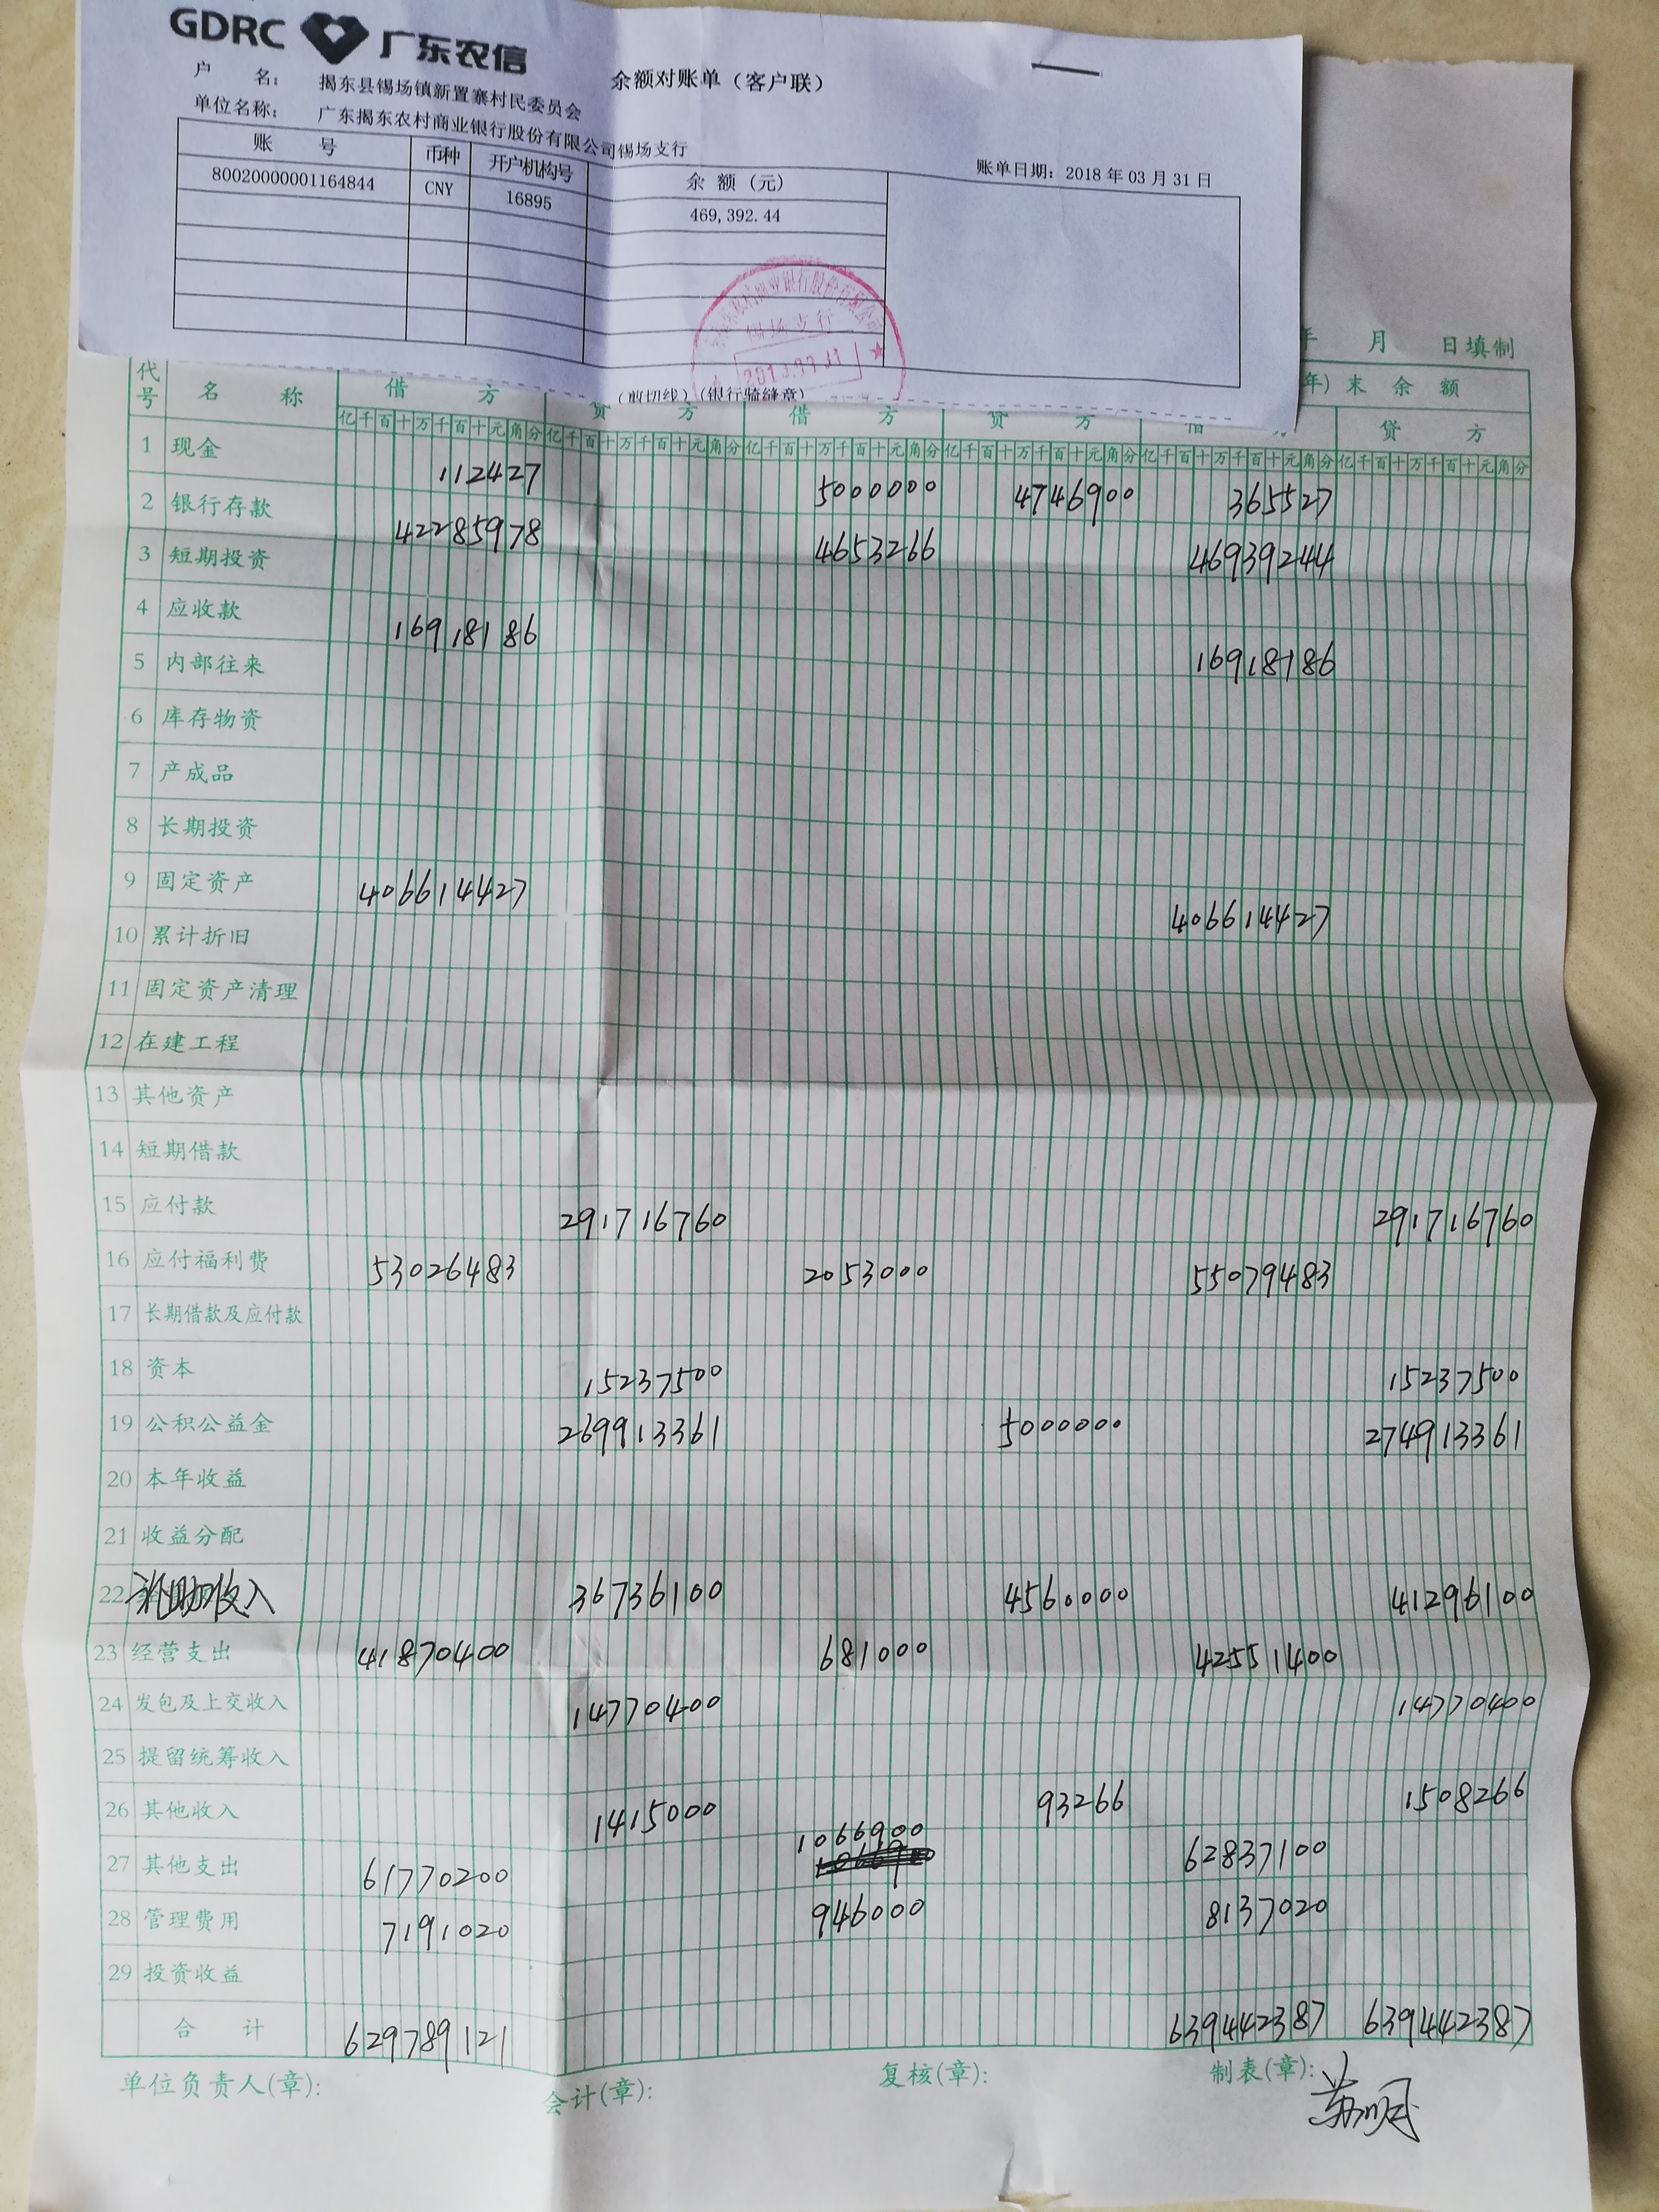 GDRC 广东农信
余额对账单（客户联）
户 名： 揭东县锡场镇新置寨村民委员会
单位名称： 广东揭东农村商业银行股份有限公司锡场支行
账单日期：2018年03月31日
账 号 币种 开户机构号 余 额（元）
80020000001164844 CNY 16895 469,392.44
锡场支行
（剪切线）（银行骑缝章）
年 月 日填制
代号 名 称 年）末 余 额
借 方 贷 方 借 方 贷 方 借 方 贷 方
亿千百十万千百十元角分 亿千百十万千百十元角分 亿千百十万千百十元角分 亿千百十万千百十元角分 亿千百十万千百十元角分 亿千百十万千百十元角分
1 现金 112427 5000000 4746900 365527
2 银行存款 42285978 4653266 46939244
3 短期投资
4 应收款 16918186 16918186
5 内部往来
6 库存物资
7 产成品
8 长期投资
9 固定资产 406614427 406614427
10 累计折旧
11 固定资产清理
12 在建工程
13 其他资产
14 短期借款
15 应付款 291716760 291716760
16 应付福利费 53026483 2053000 55079483
17 长期借款及应付款
18 资本 15237500 15237500
19 公积公益金 269913361 5000000 274913361
20 本年收益
21 收益分配
22 补助收入 36736100 4560000 41296100
23 经营支出 41870400 681000 42551400
24 发包及上交收入 14770400 14770400
25 提留统筹收入
26 其他收入 1415000 93266 1508266
27 其他支出 61770200 1066900 62837100
28 管理费用 7191020 946000 8137020
29 投资收益
合 计 629789121 639442387 639442387
单位负责人(章)： 会计(章)： 复核(章)： 制表(章)：